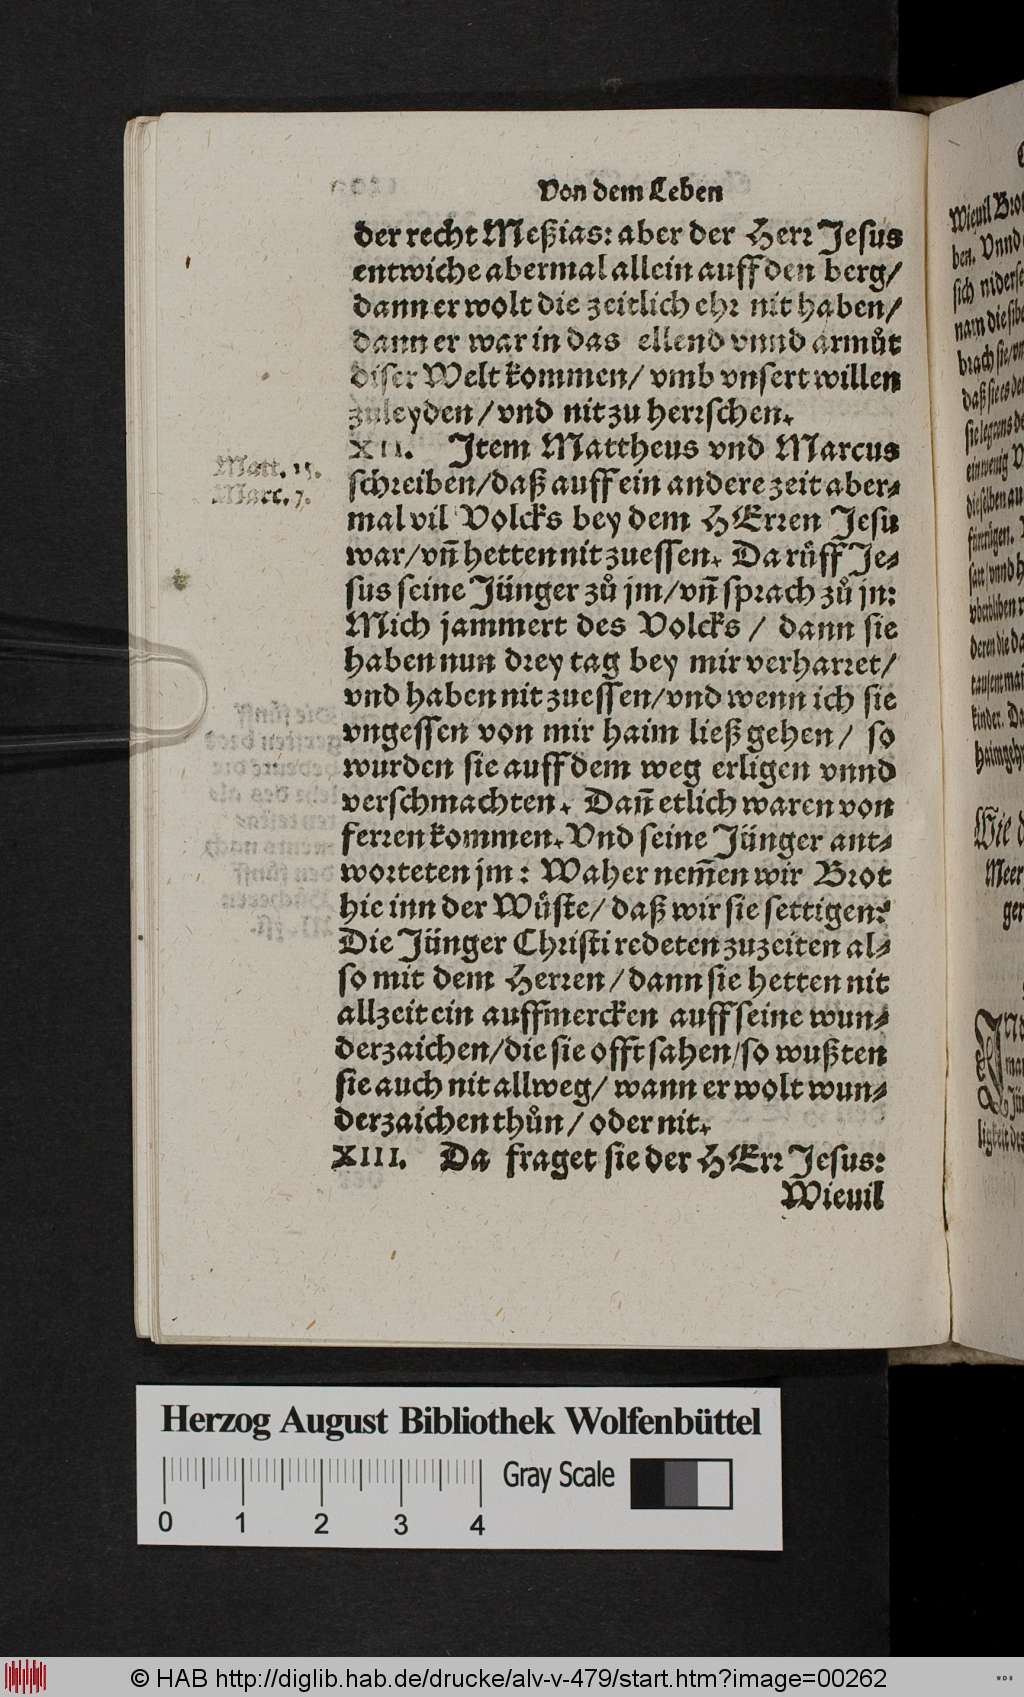 Von dem Leben
der recht Meßias: aber der Herr Jesus
entwiche abermal allein auff den berg/
dann er wolt die zeitlich ehr nit haben/
dann er war in das ellend vnnd armůt
diser Welt kommen/ vmb vnsert willen
zuleyden/ vnd nit zu herrschen.
XII. Item Mattheus vnd Marcus
Matt. 15.
Marc. 7.
schreiben/ daß auff ein andere zeit aber⸗
mal vil Volcks bey dem HErren Jesu
war/ vñ hetten nit zuessen. Da rüff Je⸗
sus seine Jünger zů jm/ vñ sprach zů jn:
Mich jammert des Volcks/ dann sie
haben nun drey tag bey mir verharret/
vnd haben nit zuessen/ vnd wenn ich sie
vngessen von mir haim ließ gehen/ so
wurden sie auff dem weg erligen vnnd
verschmachten. Dañ etlich waren von
ferren kommen. Vnd seine Jünger ant⸗
worteten jm: Waher nem̃en wir Brot
hie inn der Wüste/ daß wir sie settigen?
Die Jünger Christi redeten zuzeiten al⸗
so mit dem Herren/ dann sie hetten nit
allzeit ein auffmercken auff seine wun⸗
derzaichen/ die sie offt sahen/ so wußten
sie auch nit allweg/ wann er wolt wun⸗
derzaichen thůn/ oder nit.
XIII. Da fraget sie der HErr Jesus:
Wieuil
Wieuil Brot
ben. Vnnd
nam die
brach sie/
daß sie es
ein wenig
dieselben
Wie
Meer
Herzog August Bibliothek Wolfenbüttel
Gray Scale
0 1 2 3 4
© HAB http://diglib.hab.de/drucke/alv-v-479/start.htm?image=00262